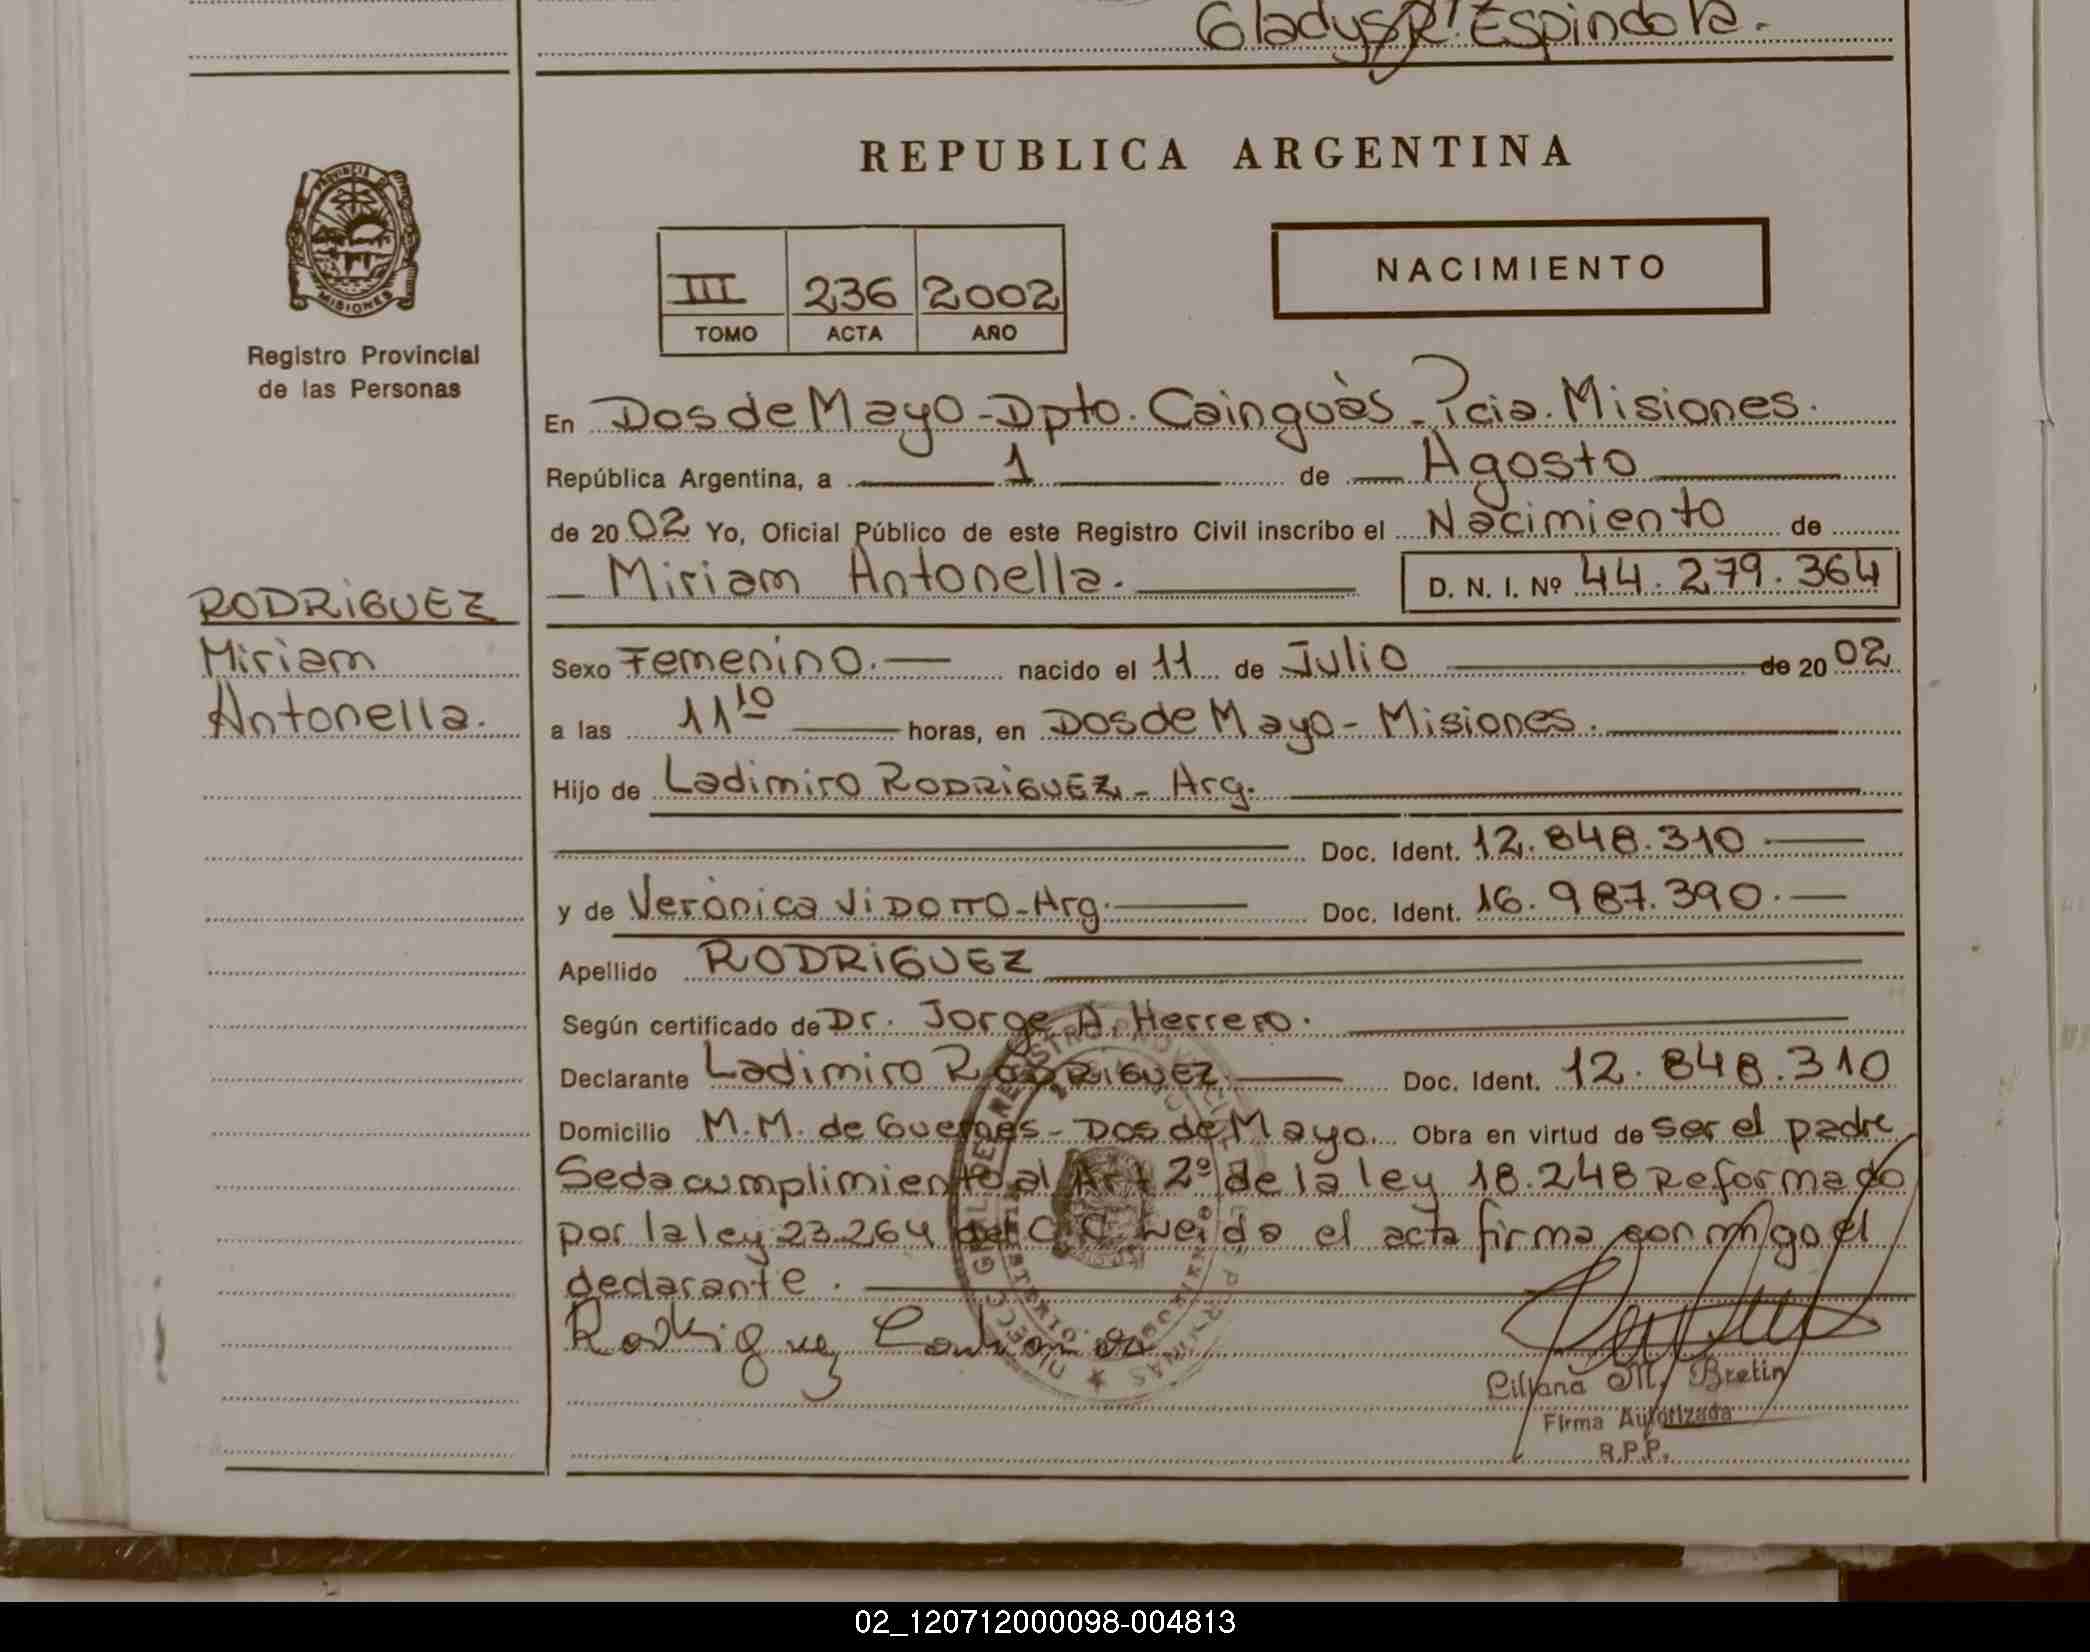 Gladys R. Espindola.
PROVINCIA DE
MISIONES
Registro Provincial
de las Personas
RODRIGUEZ
Miriam
Antonella.
REPUBLICA ARGENTINA
III 236 2002
TOMO ACTA AÑO
NACIMIENTO
En Dos de Mayo - Dpto. Cainguàs - Pcia. Misiones.
República Argentina, a 1 de Agosto
de 20 02 Yo, Oficial Público de este Registro Civil inscribo el Nacimiento de
Miriam Antonella. D. N. I. Nº 44.279.364
Sexo Femenino. nacido el 11 de Julio de 20 02
a las 11 10 horas, en Dos de Mayo - Misiones.
Hijo de Ladimiro RODRIGUEZ - Arg.
Doc. Ident. 12.848.310
y de Verònica VIDOTTO - Arg. Doc. Ident. 16.987.390.
Apellido RODRIGUEZ
Según certificado de Dr. Jorge A. Herrero.
Declarante Ladimiro RODRIGUEZ Doc. Ident. 12.848.310
Domicilio M.M. de Guemes - Dos de Mayo. Obra en virtud de ser el padre
Se da cumplimiento al Art 2º de la ley 18.248 Reformado
por la ley 23.264 del C.C. Leido el acta firma conmigo el
declarante.
Rodriguez
Liliana M. Bretin
Firma Autorizada
R.P.P.
02_120712000098-004813